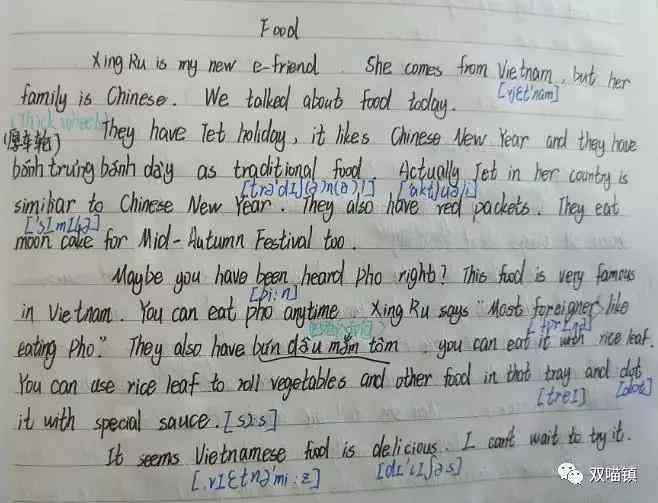 Food
Xing Ru is my new e-friend. She comes from Vietnam, but her
[vjɛt'nam]
family is Chinese. We talked about food today.
(Thick wheels)
(厚车轮)
They have Tet holiday, it likes Chinese New Year and they have
bánh trưng bánh dày as traditional food. Actually Tet in her country is
[trə'dɪʃ(ə)n(ə)l] ['aktʃuəli]
similiar to Chinese New Year. They also have red packets. They eat
['sɪmɪlə]
moon cake for Mid-Autumn Festival too.
Maybe you have been heard pho right? This food is very famous
[bi:n]
in Vietnam. You can eat pho anytime. Xing Ru says "Most foreigner like
eating Pho." They also have bún dậu mắm tôm, you can eat it with rice leaf.
You can use rice leaf to roll vegetables and other food in that tray and dot
[treɪ] [dɒt]
it with special sauce. [sɔ:s]
It seems Vietnamese food is delicious. I can't wait to try it.
[ˌvɪɛtnə'mi:z] [dɪ'lɪʃəs]
双喵镇